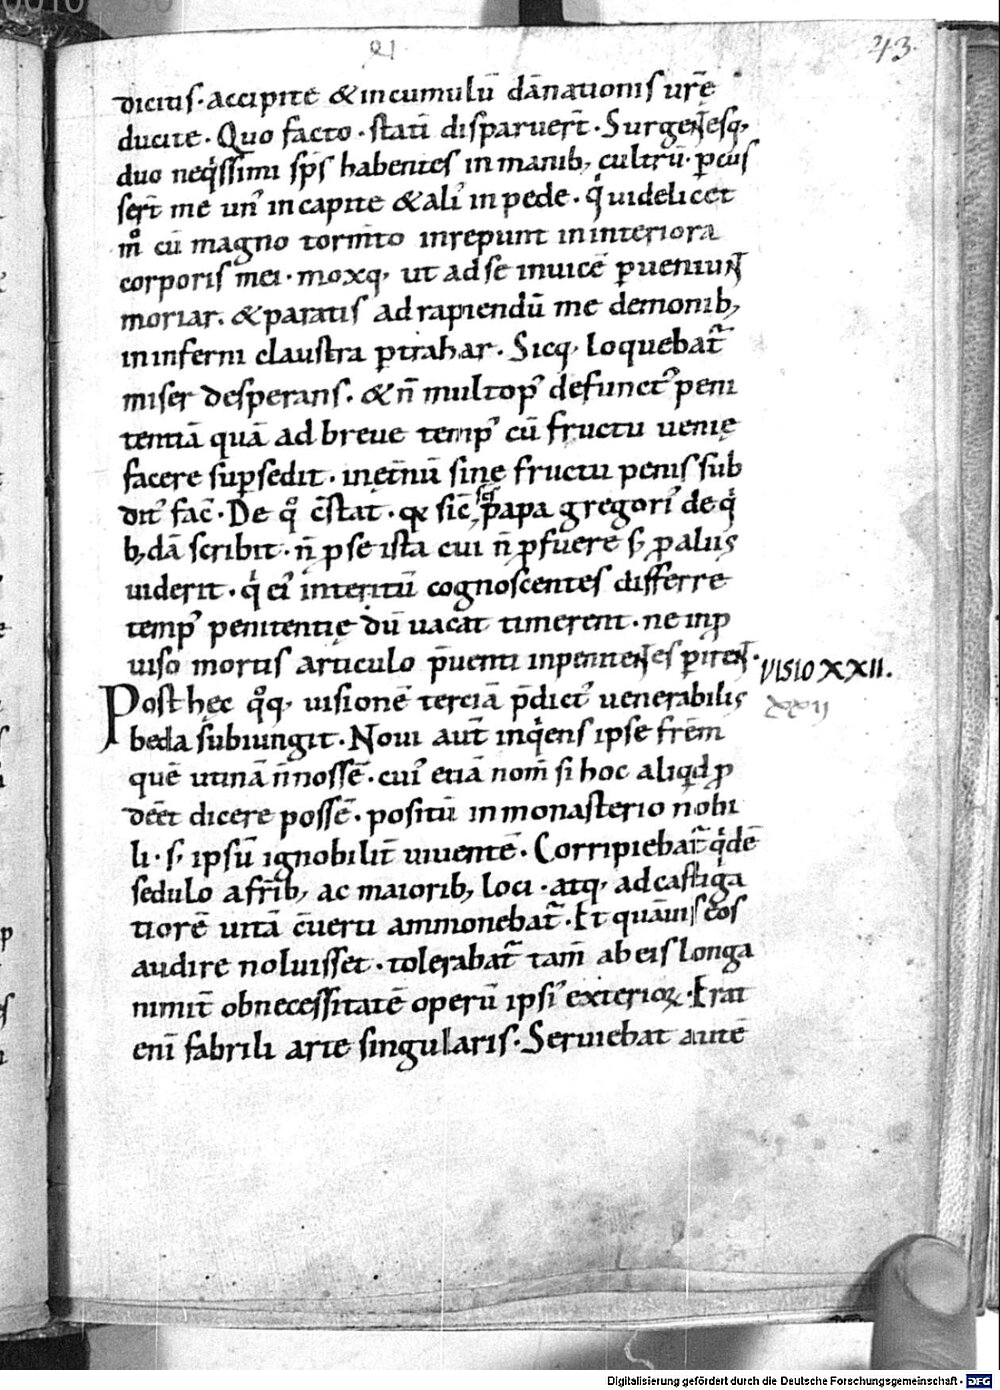 21
43.
dicitis. accipite &incumulū dānationis urē
ducite. Quo facto. statī disparuert̄. Surgentesq;
duo neqssimi sp̄s habentes in manib; cultrū. p̱cus
sert̄ me un᾽ incapite & ali᾽ inpede. qͥ uidelicet
m̊ cū magno torm̄to inrepunt ininteriora
corporis mei. moxq; ut adse inuicē p̱ueniunt
moriar. &paratis adrapiendū me demonib;
ininferni claustra p̱trahar. Sicq; loquebat᷑
miser desperans. &n̄ multop᾽ defunct᾽ peni
tentiā quā ad breue temp᾽ cū fructu uenię
facere sup̱sedit. inęt̄nū sine fructu penis sub
dit᾽ fac̄. De qͦ c̄stat. qꝫ sic̄ sc̄s papa gregori᾽ de qͥ
b;dā scribit. n̄ p̱ se ista cui n̄ ꝓfuere s; ꝓ aliis
uiderit. qͥ ei᾽ interitū cognoscentes differre
temp᾽ penitentię dū uacat timerent. ne inꝓ
uiso mortis articulo p̄uenti inpenitentes p̱irent.
VISIO XXII.
xxij
Post hęc qͦq; uisionē terciā p̄dict᾽ uenerabilis
beda subiungit. Noui aut̄ inqͥens ipse frēm
quē utinā n̄nossē. cui᾽ etiā nom̄ si hoc aliqd ꝓ
dēēt dicere possē. positū in monasterio nobi
li. s; ipsū ignobilit̄ uiuentē. Corripiebat᷑ qͥdē
sedulo a fr̄ib; ac maiorib; loci. atq; adcastiga
tiorē uitā c̄uerti ammonebat᷑. Et quāuis eos
audire noluisset. tolerabat᷑ tam̄ ab eis longa
nimit̄ obnecessitatē operū ipsi᾽ exterioꝝ. Erat
eni fabrili arte singularis. Seruiebat autē
Digitalisierung gefördert durch die Deutsche Forschungsgemeinschaft - DFG